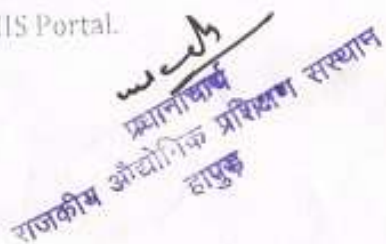 IIS Portal.
प्रधानाचार्य
राजकीय औद्योगिक प्रशिक्षण संस्थान
हापुड़